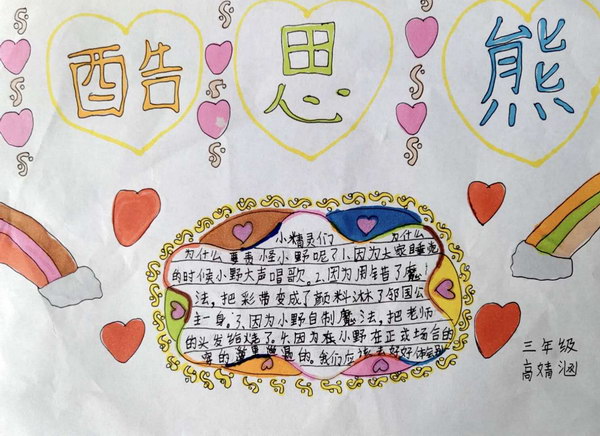 酷思熊
小精灵们 为什么
为什么要责怪小野呢?1.因为大家睡觉
的时候小野大声唱歌。2.因为用错了魔
法,把彩带变成了颜料淋了邻国公
主一身。3.因为小野自制魔法,把老师
的头发给烧了。4.因为在小野在正式场合的
我们应该去好好体会别
三年级
高婧